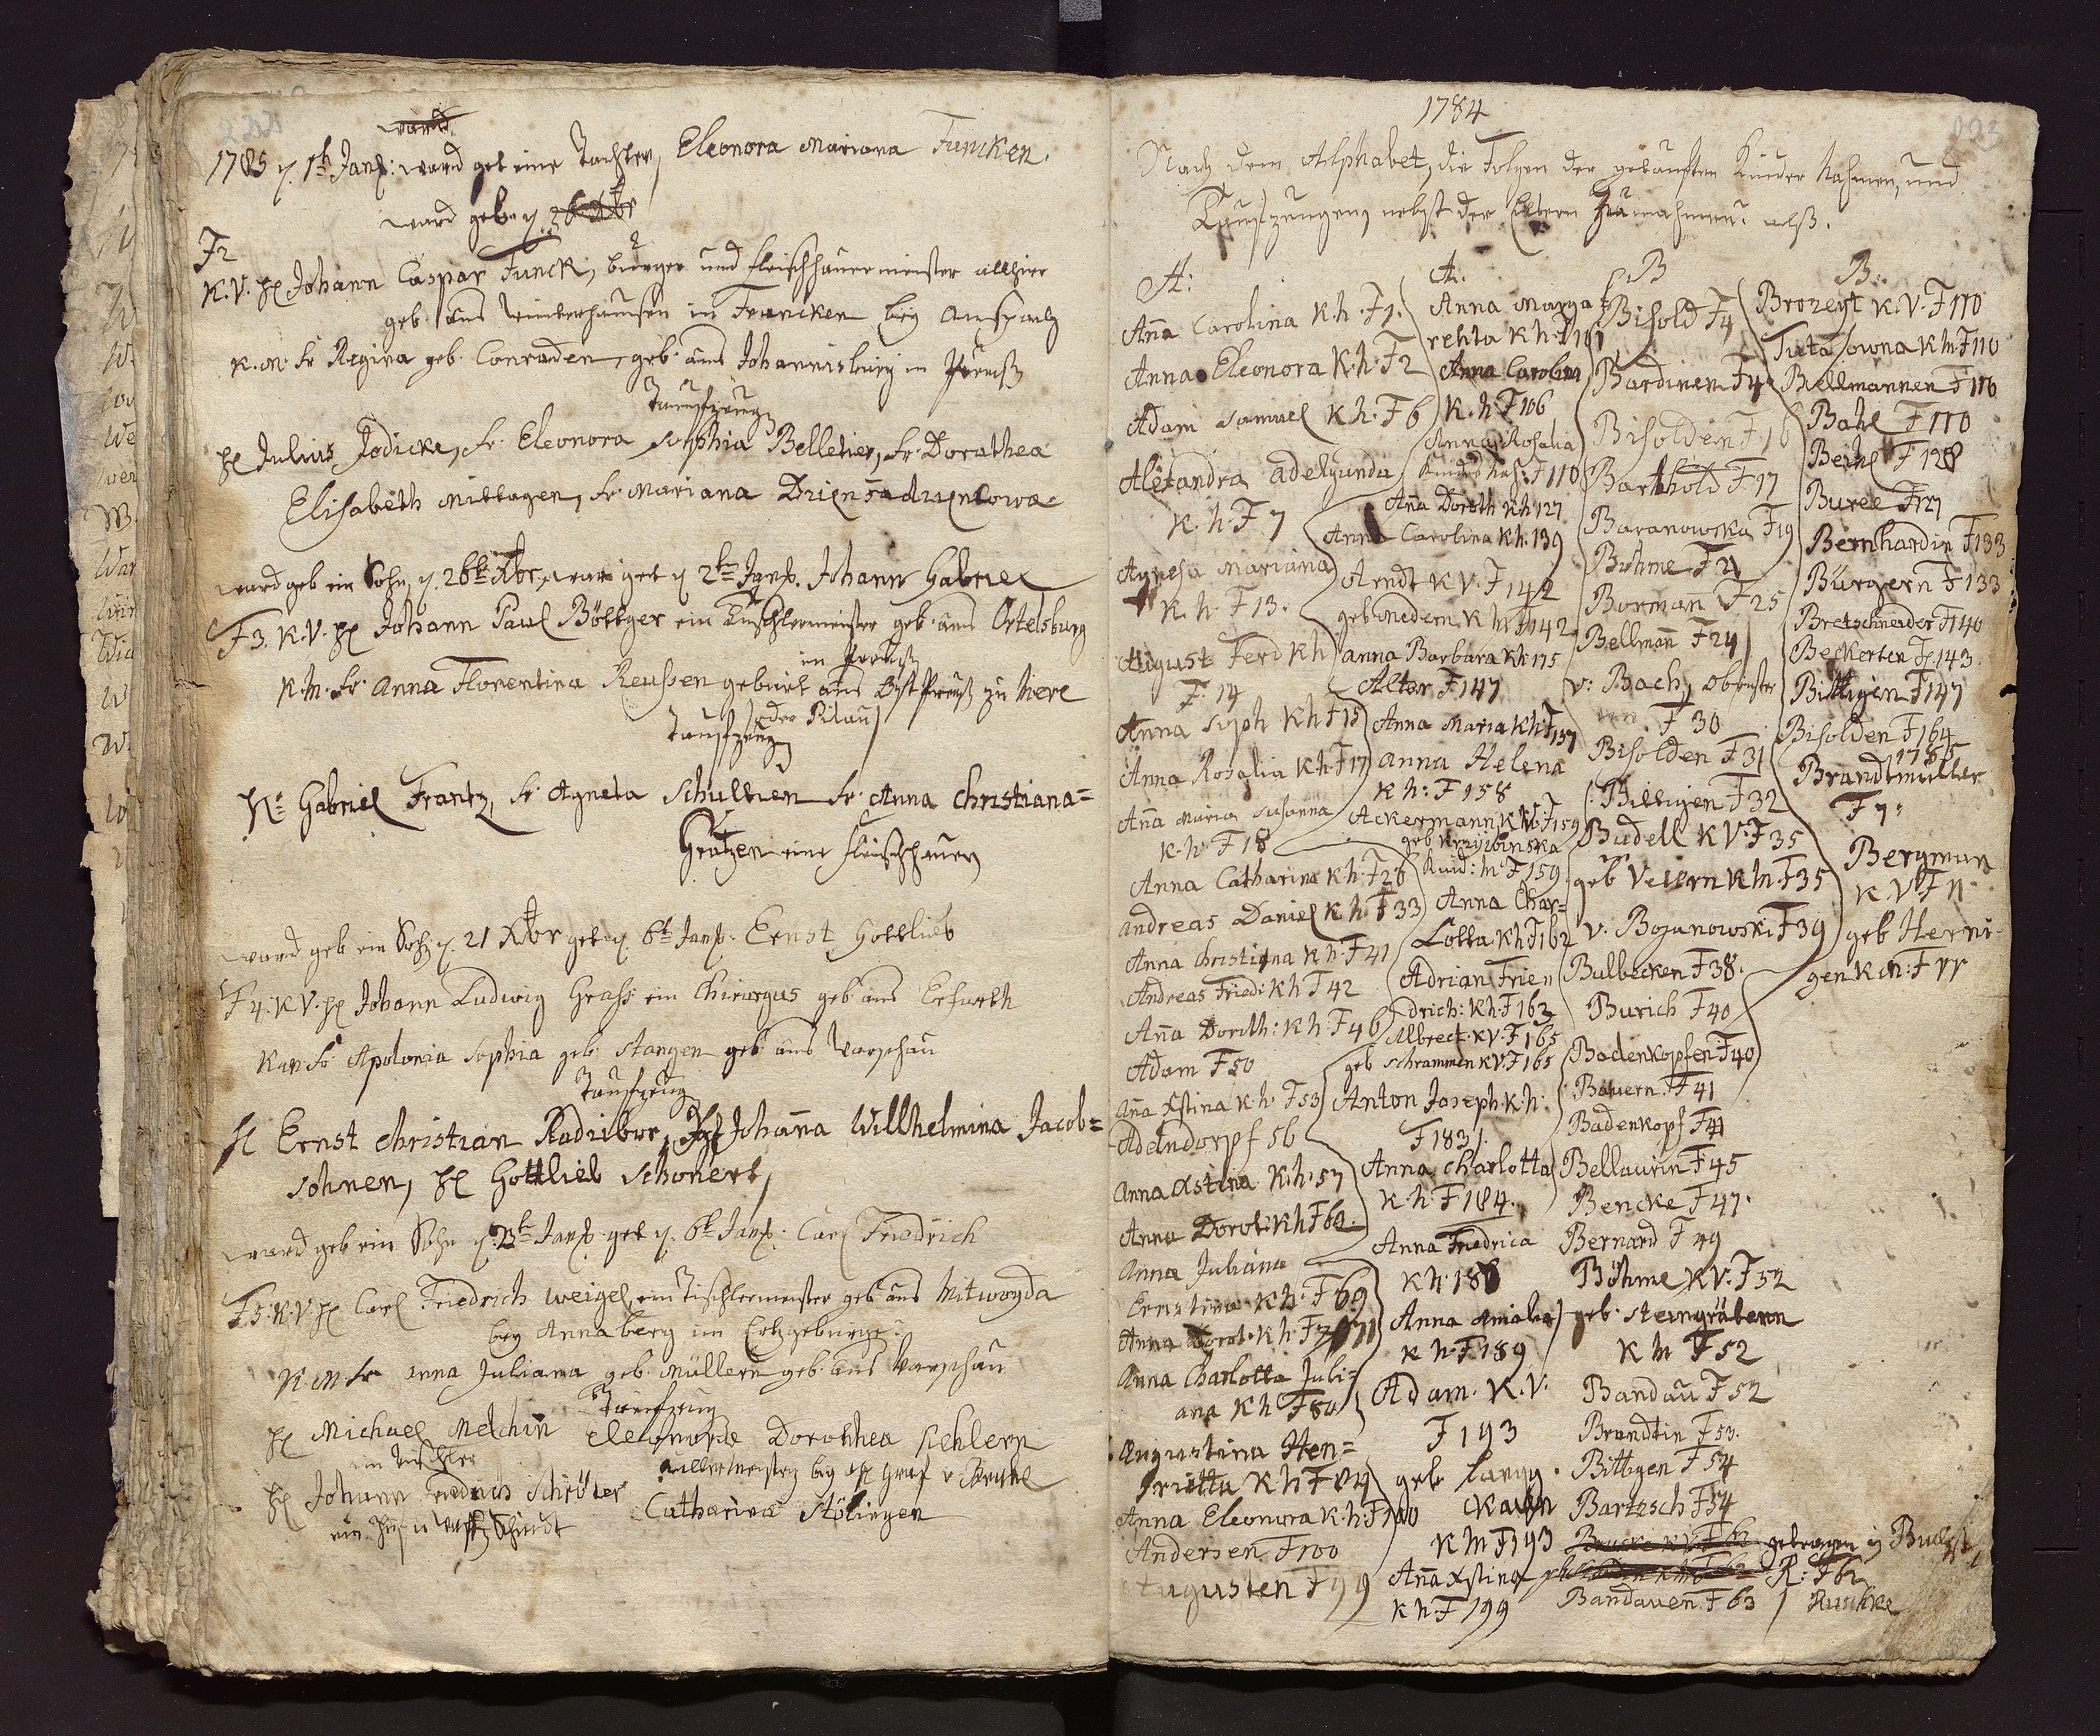 222
ward
1785 d. 1t Janr: ward get eine Tochter, Eleonora Mariana Funcken.
ward gebe d. 26 Xbr
F2
K.V. H Johann Caspar Funck, bürger und fleischhauermeister allhier
geb. aus Winterhausen in Francken bey Anspach
K.M. Fr Regina geb. Conraden, geb. aus Johannisburg in Preuß
Taufzeug
H Julius Jödicke, Fr. Eleonora Sophia Belletier, Fr. Dorothea
Elisabeth Mittagen, Fr. Mariana
ward geb ein Sohn, d. 26t Xbr, get d 2t Janr. Johann Gabriel
F3. K.V. H Johann Paul Böttger ein Tischlermeister geb. aus Ortelsburg
in Preuß
K.M. Fr. Anna Florentina Reussen gebürt aus Ost Preuß zu
oder Pilau
Taufzeug
H: Gabriel Frantz, Fr. Agneta Schultzen Fr. Anna Christiana=
Grätzen eine fleischhauern
ward geb ein Sohn d. 21 Xbr get d. 6t Janr. Ernst Gottlieb
F4. K.V. H Johann Ludwig Grass ein Chirurgus geb aus Erfurth
K.M. Fr Apolonia Sophia geb. Stangen geb aus Warschau
Taufzeug
H Ernst Christian Radziber, Johanna Willhelmina Jacob=
sohnen, H Gottlieb Schonert,
ward geb ein Sohn d. 2t Janr. get d. 6t Janr. Carl Friedrich
F5. K.V H Carl Friedrich Weigel, ein Tischlermeister geb aus Mitwoyda
bey Annaberg im Ertzgebürge
K.M Fr Anna Juliana geb. Müllern geb. aus Warschau
Taufzeug
H Michael Melchin Eleonora Dorothea Kehlern
ein Tischler bey H Graf v Bruhl
H Johann Fredrich Schröter Catharina Stölingen
223
1784
Nach dem Alphabet, die Folgen der getauften Kinder Nahmen, und
Taufzeugen, nebst der Eltern Zunahmen: alß.
A:
Anna Carolina K.h. F1.
Anna Eleonora K.h. F2
Adam Samuel K.h. F6
Alexandra Adelgunda
K.h. F7
Agnesa Mariana
K.h. F13.
August Ferd Kh
F.14
Anna Soph Kh F15
Anna Rosalia K.h. F17
Anna Maria Susanna
K.h. F18
Anna Catharina K.h. F28
Andreas Daniel K.h. F33
Anna Christiana K.h. F41
Andreas Fried: Kh F42
Anna Doroth: Kh. F46
Adam F50
Ana Xstina K.h. F53
Adelndorpf 56
Anna Xstina K.h. 57
Anna Dorot: Kh F60.
Anna Juliana
Ernstina K.h. F69
Anna Dorot. K.h. F71
Anna Charlotta Juli=
ana Kh F80
Augustina Hen=
rietta K.h F84
Anna Eleonora K.h. F100
Andersen F100
Augusten F99
A.
Anna Marga
rehta K.h. F101
Anna Carolina
K.h. F106
Anna Rosalia
F110
Ana Doroth Kh 127
Anna Carolina Kh. 139
Arndt K.V. F142
geb. Medem K M F142
Anna Barbara Kh 175
Alter F147
Anna Maria Kh F157
Anna Helena
K.h: F158
Ackermann K V. F159
geb Krzyibinska
M. F159.
Anna Char=
Lotta Kh F162
Adrian Frie=
drich: Kh. F163
Albrect. KV. F165
geb Schrammen KV. F165
Anton Joseph. K.h.
F183.
Anna Charlotta
K h. F184.
Anna Friedrica
K h 188
Anna Amalia
K h. F189
Adam. K.V.
F193
geb
K M F193
Ana Xstina
K h F199
B
Bisold F4
Bardinen F4
Bisolden F16
Barthold F17
Baranowska F19
Böhme F21
Borman F25
Bellman F24
v: Bach, Obrister
F30
Bisolden F31
Billigen F32
Budell K V. F35
geb Veiern K M. F35
v. Bojanowski F39
Bulbecken F38.
Burich F40
Badenkopfen F40
Bauern. F41
Badenkopf F41
Bellaurin F45
Bencke F47.
Bernard F49
Böhme K V. F52
geb. Steingräbern
K M F52
Bandau F52
Brandtin F53.
Bittgen F54
Bartzsch F54
Bandauen. F63
B.
Brozeyt K V. F110
K M F110
Bellmannen F110
Bahl F110
Beihl F128
Buree F127
Bernhardin F133
Bürgern F133
Bretschneider F140
Beckerten F. 143.
Bittigen F147
Bisolden F164
1785
Brandtmüller
F7.
Bergman
K V F11
geb Herni-
gen K M. F11
getragen
R: F62
Ruschke